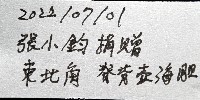 2022/07/01
張小鈞 捐贈
東北角 脊背壺海胆